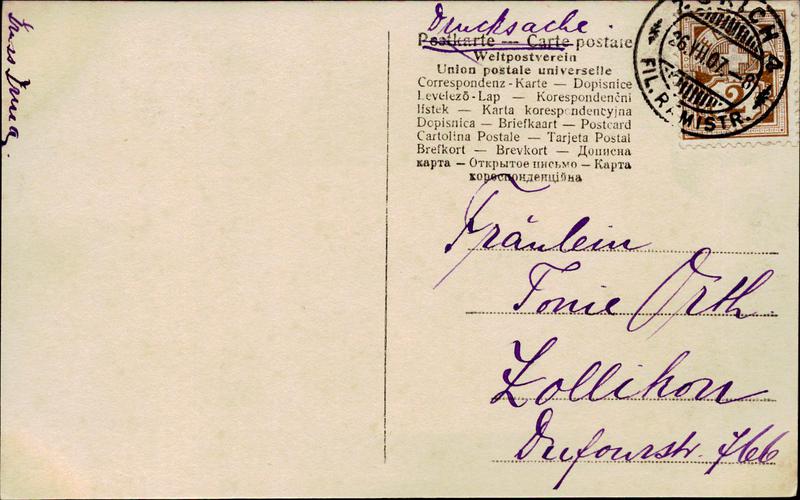 Gruss Irma
Drucksache
Postkarte — Carte postale
Weltpostverein
Union postale universelle
Correspondenz-Karte — Dopisnice
Levelezö-Lap — Korespondenční
lístek — Karta korespondencyjna
Dopisnica — Briefkaart — Postcard
Cartolina Postale — Tarjeta Postal
Brefkort — Brevkort — Дописна
карта — Открытое письмо — Карта
кореспонденційна
26.VII.07.–8
FIL. RÄMISTR.
2
Fräulein
Tonie Orth
Zollikon
Dufourstr. 466